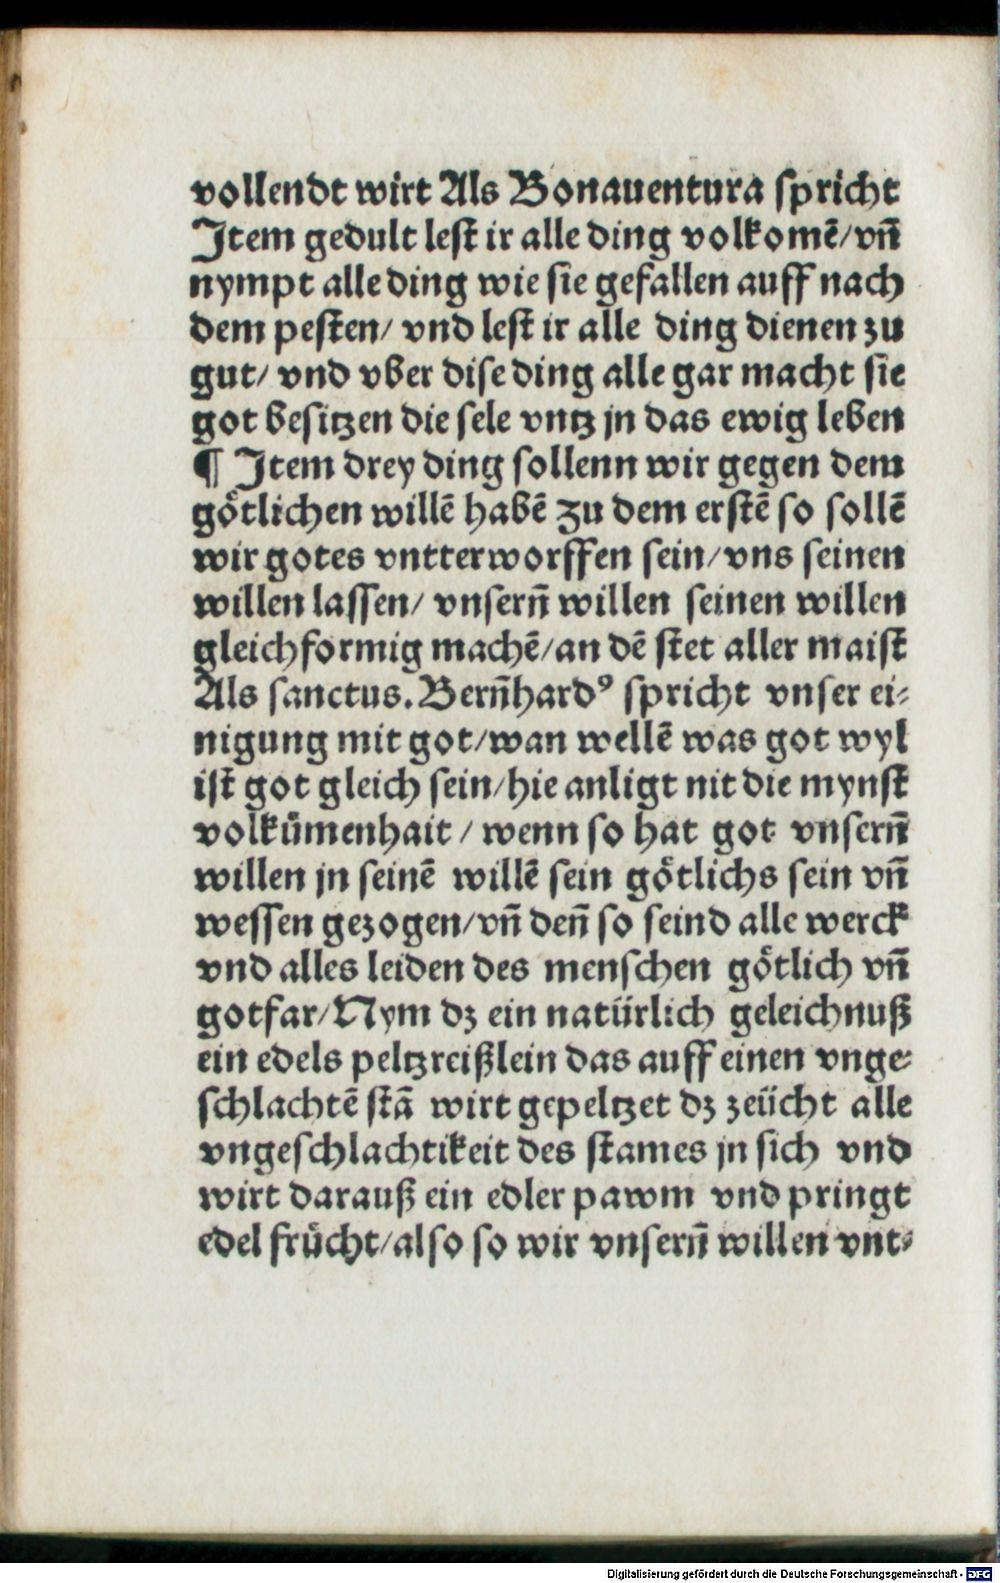 vollendt wirt Als Bonauentura spricht
Item gedult lest ir alle ding volkomē/vn̄
nympt alle ding wie sie gefallen auff nach
dem pesten/ vnd lest ir alle ding dienen zu
gut/ vnd vber dise ding alle gar macht sie
got besitzen die sele vntz jn das ewig leben
¶ Item drey ding sollenn wir gegen dem
götlichen willē habē zu dem erstē so sollē
wir gotes vntterworffen sein/vns seinen
willen lassen/ vnsern̄ willen seinen willen
gleichformig machē/an dē stet aller maist
Als sanctus. Bern̄hardꝰ spricht vnser ei⸗
nigung mit got/wan wellē was got wyl
ist got gleich sein/hie anligt nit die mynst
volkūmenhait / wenn so hat got vnsern̄
willen jn seinē willē sein götlichs sein vn̄
wessen gezogen/vn̄ den̄ so seind alle werck
vnd alles leiden des menschen götlich vn̄
gotfar/Nym dz ein natürlich geleichnuß
ein edels peltzreißlein das auff einen vnge⸗
schlachtē stā wirt gepeltzet dz zeücht alle
vngeschlachtikeit des stames jn sich vnd
wirt darauß ein edler pawm vnd pringt
edel frücht/also so wir vnsern̄ willen vnt⸗
Digitalisierung gefördert durch die Deutsche Forschungsgemeinschaft - DFG